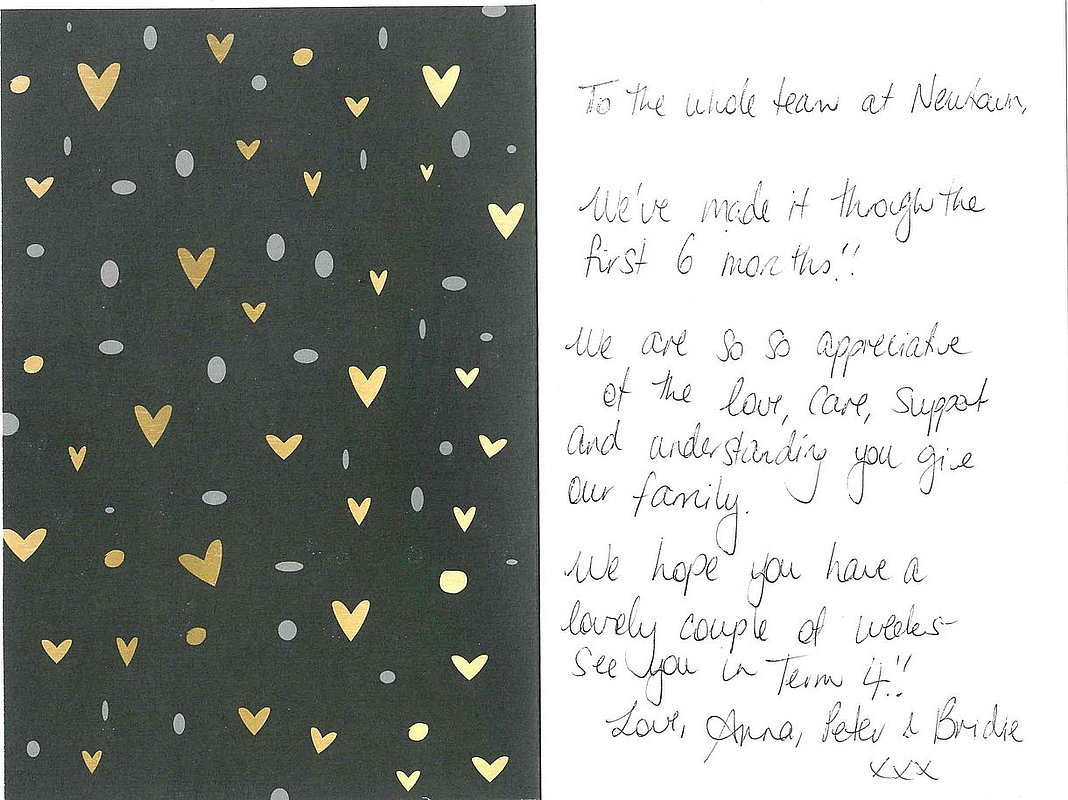 To the whole team at Newtown,
We've made it through the
first 6 months!!
We are so so appreciative
of the love, care, support
and understanding you give
our family.
We hope you have a
lovely couple of weeks -
see you in Term 4!!
Love, Anna, Peter & Bridie
xxx